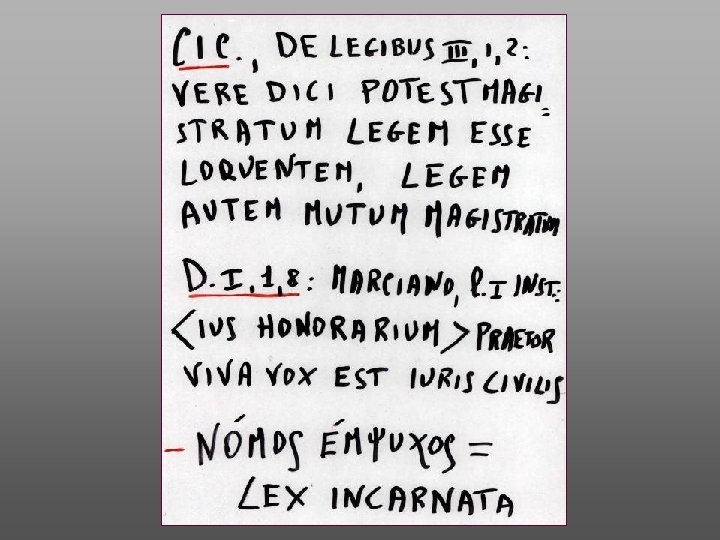 CIC., DE LEGIBUS III, 1, 2:
VERE DICI POTEST MAGI=
STRATUM LEGEM ESSE
LOQVENTEM, LEGEM
AUTEM MUTUM MAGISTRATUM
D. I, 1, 8: MARCIANO, l. I INST.:
<IUS HONORARIUM> PRAETOR
VIVA VOX EST IURIS CIVILIS
- NÓMOS ÉMΨUXOS =
LEX INCARNATA